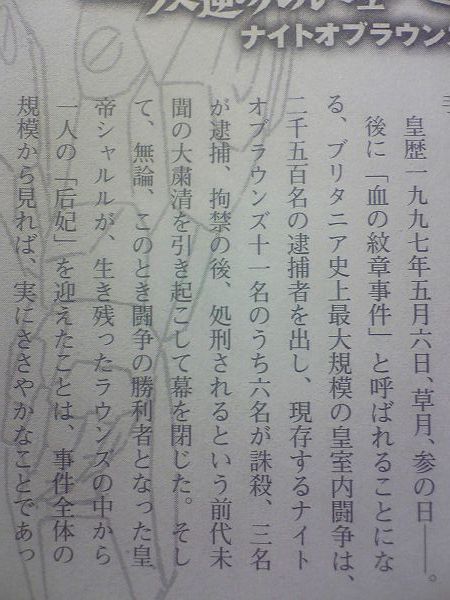 ナイトオブラウン
皇歴一九九七年五月六日、草月、参の日――。
後に「血の紋章事件」と呼ばれることにな
る、ブリタニア史上最大規模の皇室内闘争は、
二千五百名の逮捕者を出し、現存するナイト
オブラウンズ十一名のうち六名が誅殺、三名
が逮捕、拘禁の後、処刑されるという前代未
聞の大粛清を引き起こして幕を閉じた。そし
て、無論、このとき闘争の勝利者となった皇
帝シャルルが、生き残ったラウンズの中から
一人の「后妃」を迎えたことは、事件全体の
規模から見れば、実にささやかなことであっ